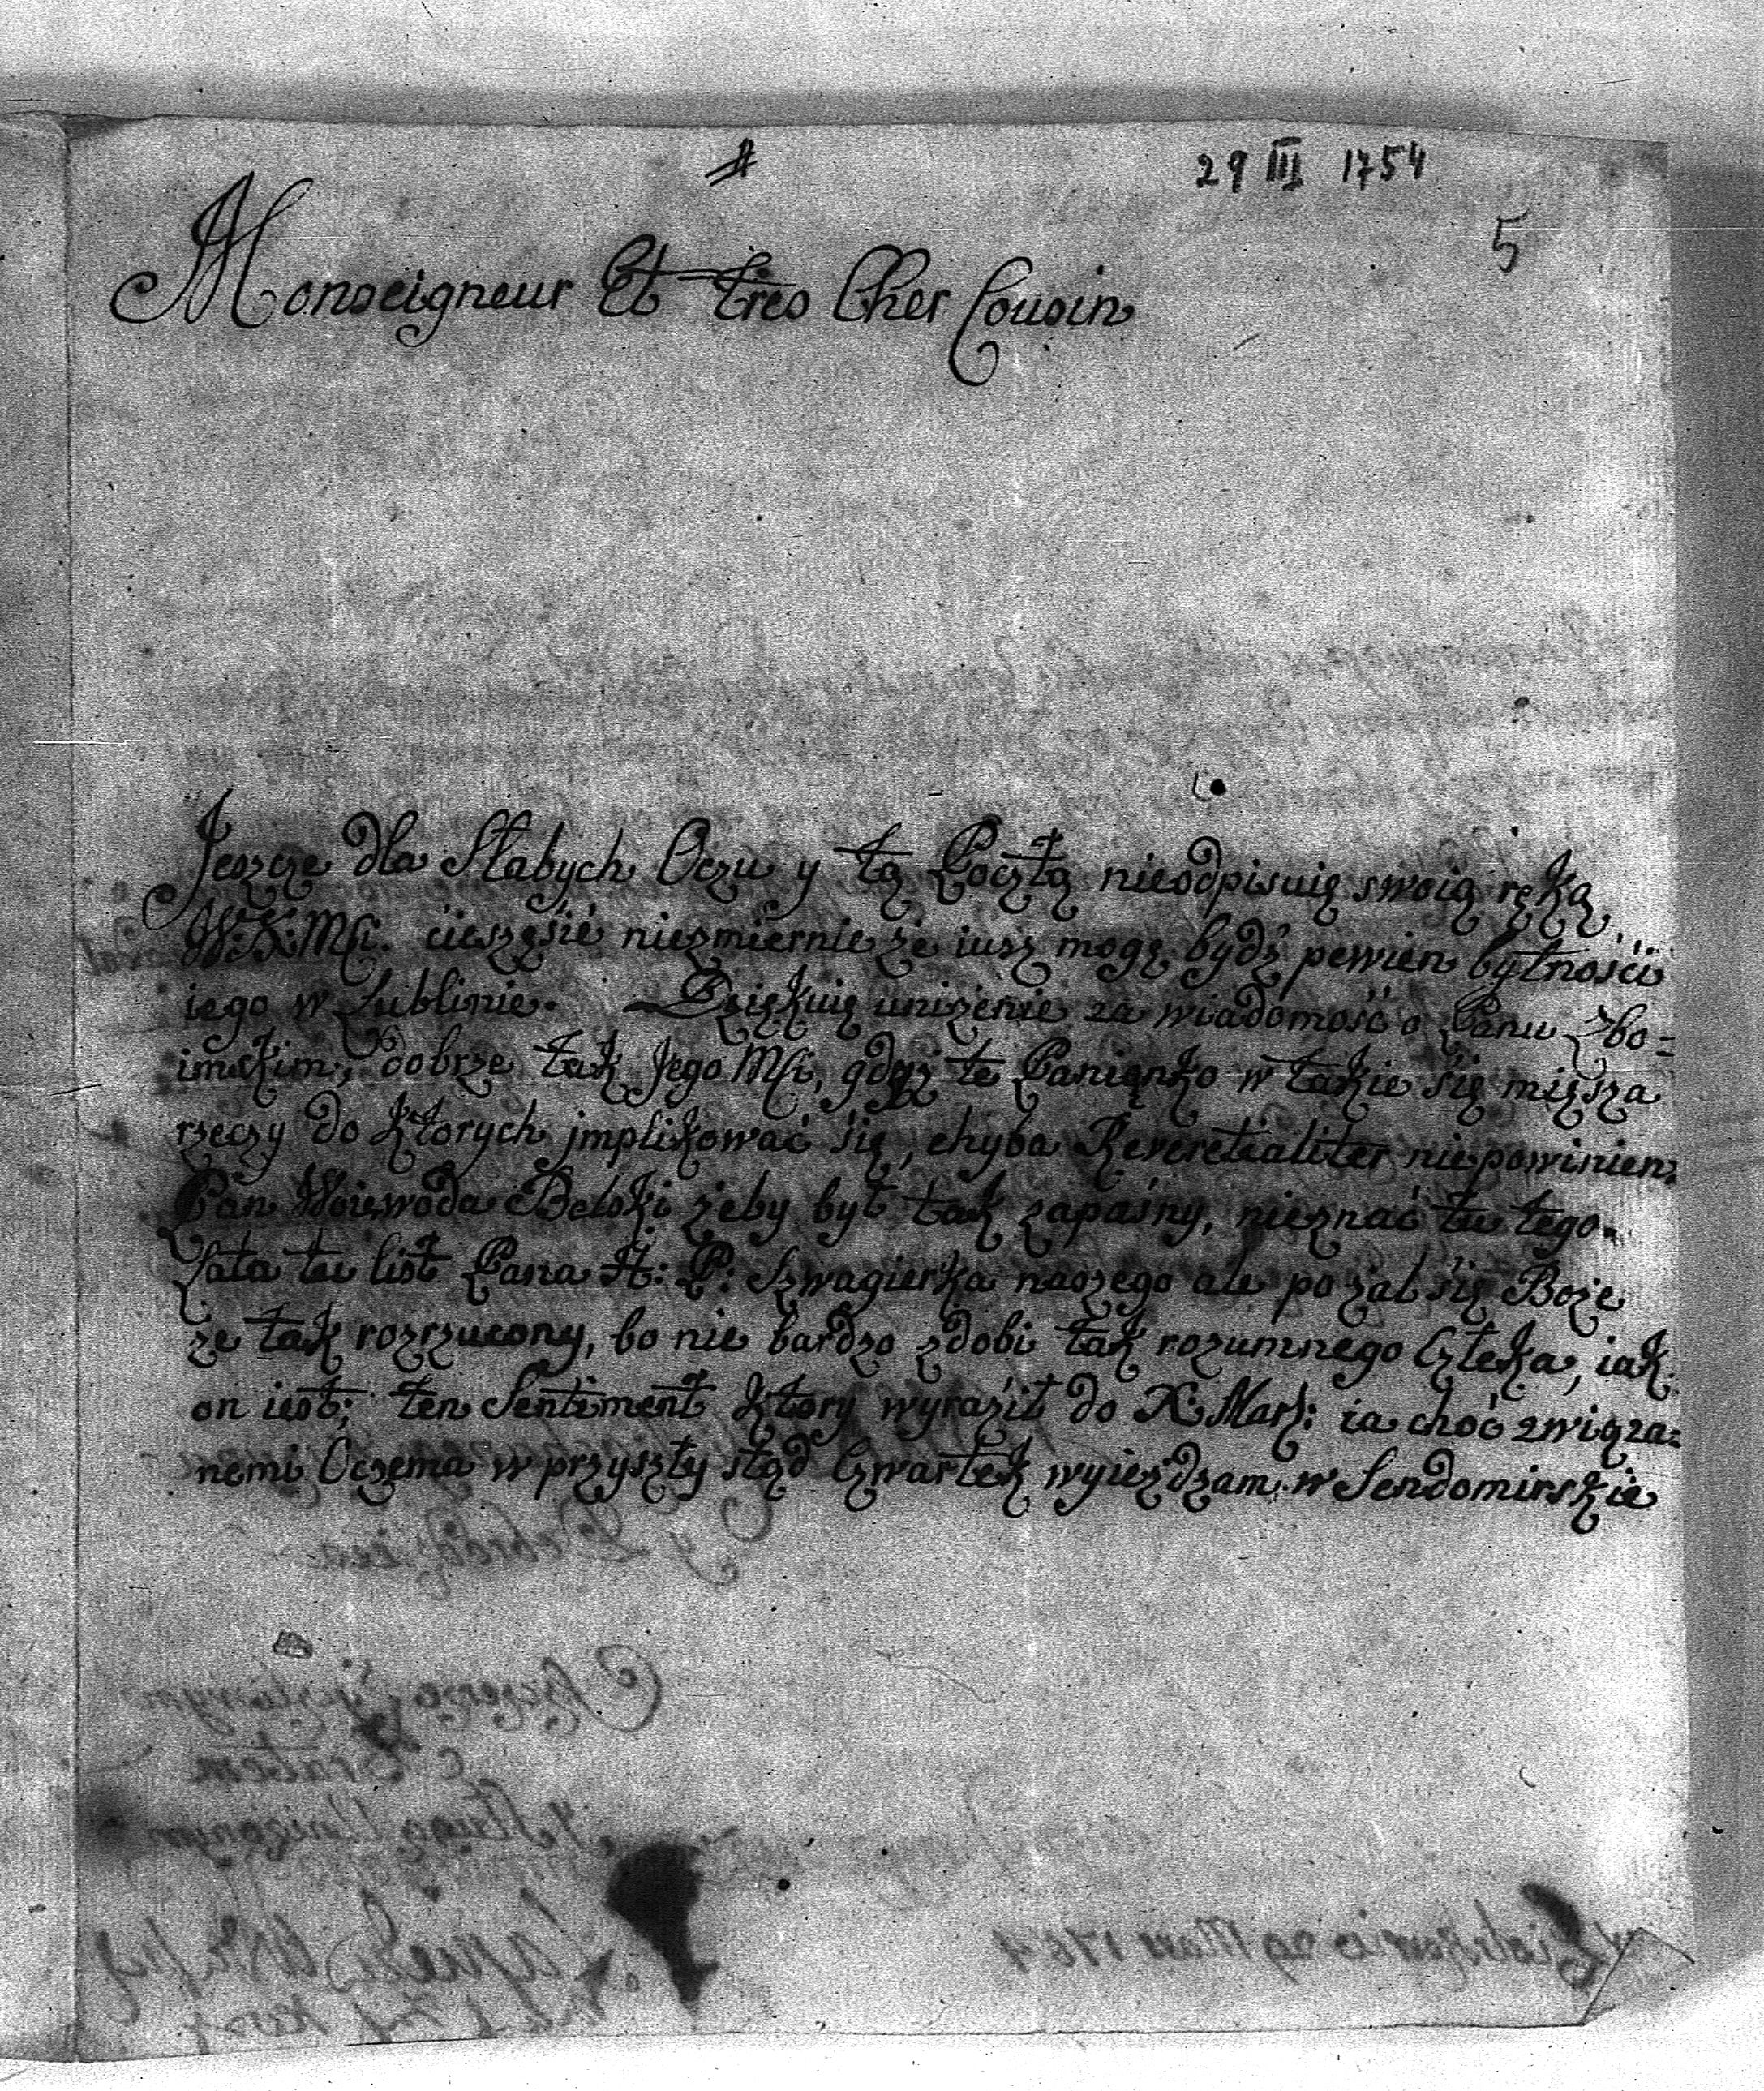 29 III 1754
5
Monseigneur Et tres Cher Cousin
Jeszcze dla Słabych Oczu y tą Pocztą nieodpisuię swoią ręką
W:X:Mći. cieszęśię niezmiernie że iusz mogę bydź pewien bytnośći
iego w Lublinie. Dziękuię uniżenie za wiadomość o Panu Zbo=
imskim, dobrze tak Jego Mći, gdyż te Panięnko w takie się mięsza
rzeczy do ktorych jmplikować się, chyba nie powinien.
Pan Woiewoda Belski żeby był tak zapaśny, nieznać tu tego.
Lata tu list Pana H: P: Szwagierka naszego ale pożal się Boże
że tak rozrzucony, bo nie bardzo zdobi tak rozumnego Człeka, iak
on iest; ten Sentiment ktory wyraźił do X: Mars: ia choć związa=
nemi Oczema w przyszły stąd Czwartek wyieżdżam w Sendomirskie